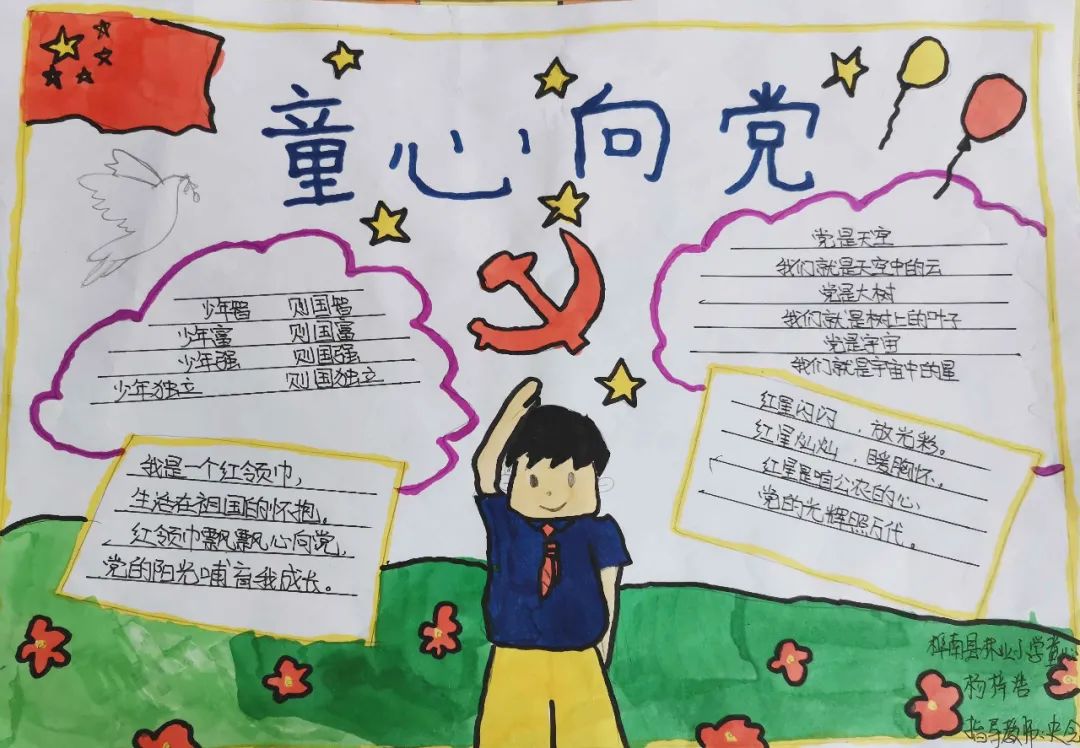 童心向党
少年智 则国智
少年富 则国富
少年强 则国强
少年独立 则国独立
党是天空
我们就是天空中的云
党是大树
我们就是树上的叶子
党是宇宙
我们就是宇宙中的星
我是一个红领巾,
生活在祖国的怀抱。
红领巾飘飘心向党,
党的阳光哺育我成长。
红星闪闪,放光彩。
红星灿灿,暖胸怀。
红星是咱公农的心
党的光辉照万代。
桦南县林业小学
杨梓浩
指导教师: